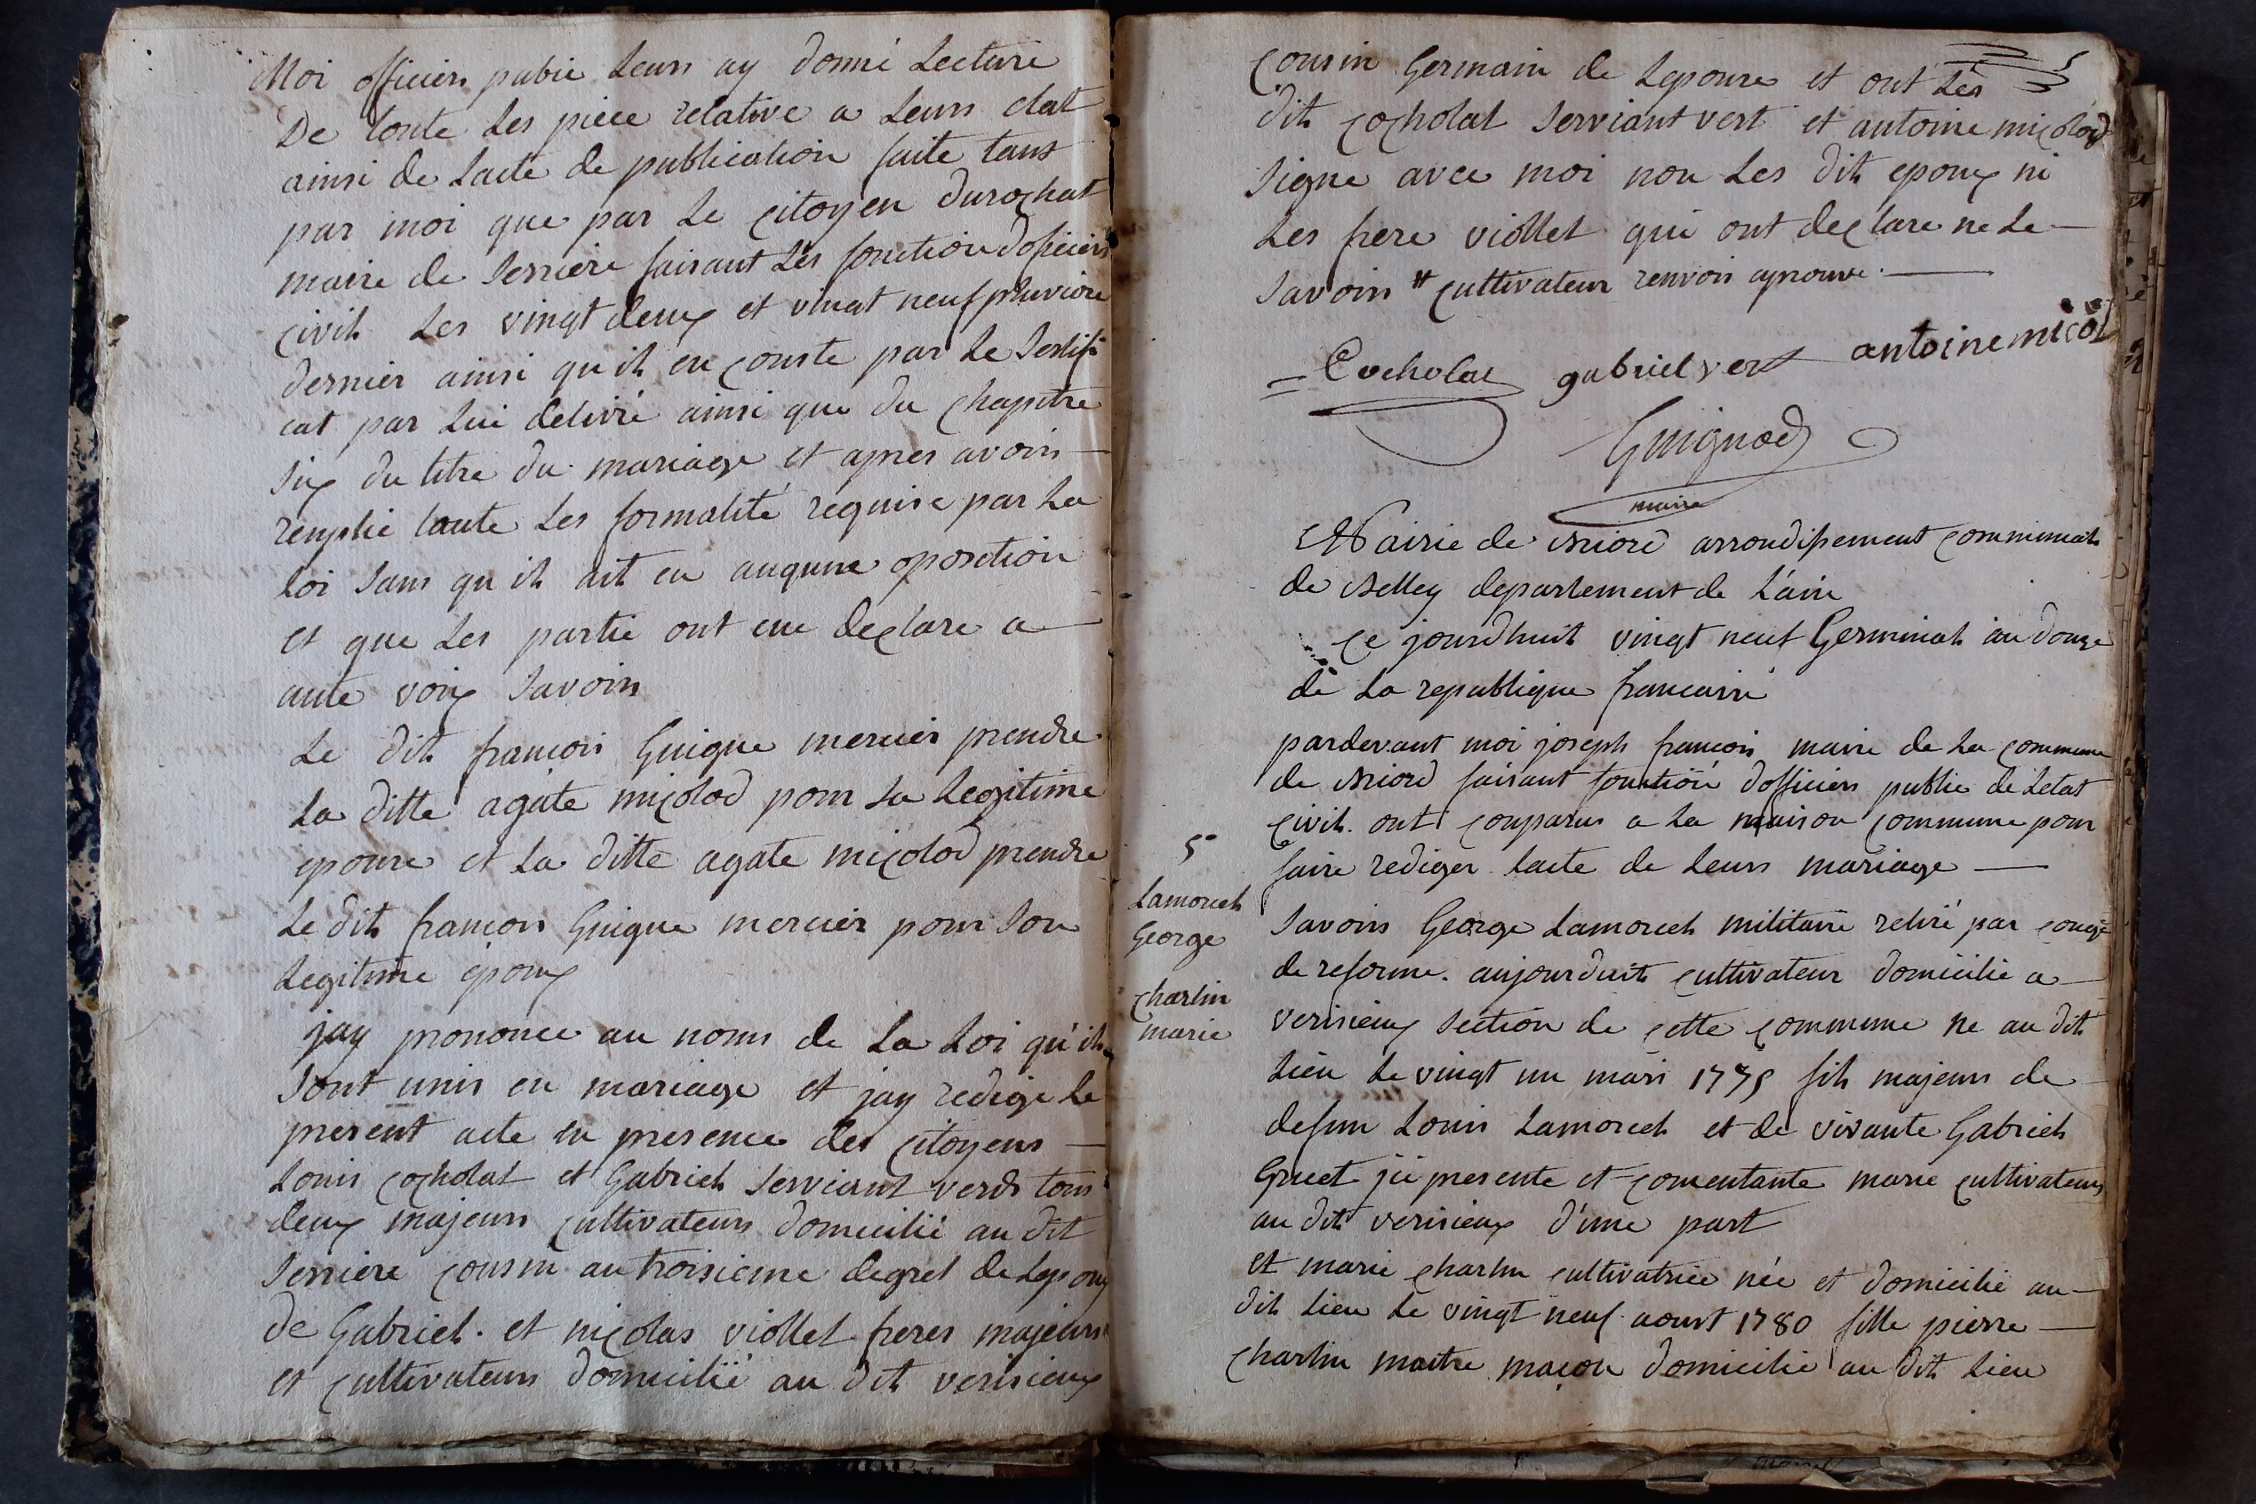 Moi officiers pubie Leurs ay donné Lecture
De toute Les piece relative a Leurs etat
ainsi de Lacte de publication faite tant
par moi que par Le citoyen durochat
maire de Serriere faisant Les fonction doficiers
civil Les vingt deux et vingt neuf pluviose
dernier ainsi qu il en conste par Le Sertifi
cat par Lui delivré ainsi que du chapitre
Six du titre du mariage et apres avoir
remplie toute Les formalité requise par La
Loi Sans qu il ait eu aucune oposition
et que Les partie ont eue declare a
aute voix Savoir
Le dit francois Guigue mercier prendre
La ditte agate micolod pour Sa Legitime
epouse et La ditte agate micolod prendre
Le dit francois Guigue mercier pour Son
Legitime epoux
jay prononce au noms de La Loi qu'ils
Sont unis en mariage et jay redige Le
present acte en presence des citoyens
Louis cocholat et Gabriel Serviant verds tous
deux majeurs cultivateurs domicilié au dit
Serriere cousin au troisieme degret de Lepoux
de Gabriel. et nicolas viollet freres majeurs
et cultivateurs domicilié au dit verisieux
cousin Germain de Lepouse et ont Les
dit cocholat Serviant vert et antoine micolod
Signe avec moi non Les dit epoux ni
Les frere viollet qui ont declare ne Le
Savoir # cultivateur renvois aprouve.
Cocholat gabriel vert antoine micol
Guignod
maire
Mairie de Briord arrondissement communal
de Belley departement de L'ain
Ce jourdhuit vingt neuf Germinal an douze
de La republique francaise
pardevant moi joseph francois maire de La commune
de Briord faisant fonction dofficiers public de Letat
civil. ont comparus a La maison commune pour
faire rediger Lacte de Leurs mariage
5°
Lamorcel
George
charlin
marie
Savoirs George Lamorcel militaire retiré par congé
de reforme. aujourduit cultivateur domicilie a
verisieux Section de cette commune ne au dit
Lieu Le vingt un mars 1775 fils majeurs de
defun Louis Lamorcel et de vivante Gabriel
Gruet jci presente et consentante marie cultivateurs
au dit verisieux d'une part
et marie charlin cultivatrice née et domicilié au
dit Lieu Le vingt neuf aoust 1780 fille pierre
charlin maitre maçon domicilie au dit Lieu